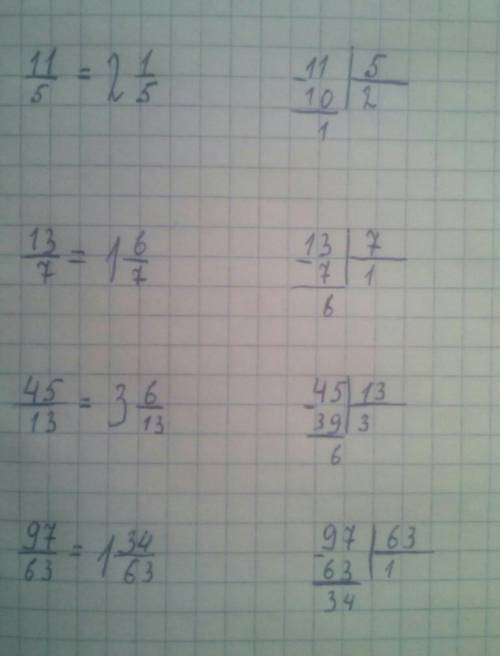 11/5 = 2 1/5
-11 | 5
10 | 2
1
13/7 = 1 6/7
-13 | 7
7 | 1
6
45/13 = 3 6/13
-45 | 13
39 | 3
6
97/63 = 1 34/63
-97 | 63
63 | 1
34